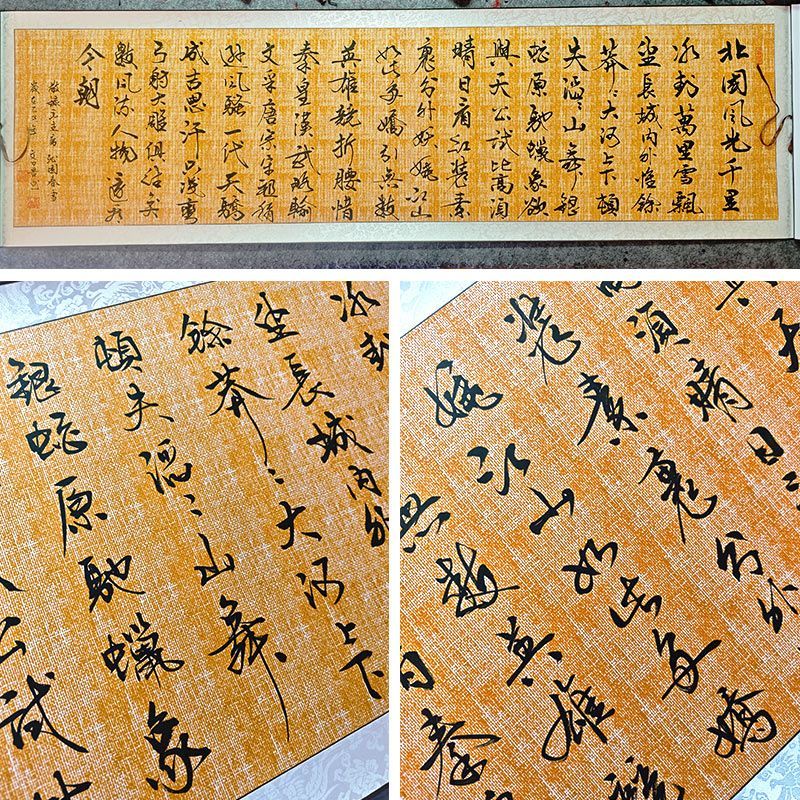 北國風光千里
冰封萬里雪飄
望長城內外惟餘
莽〻大河上下頓
失滔〻山舞銀
蛇原馳蠟象欲
與天公試比高須
晴日看紅裝素
裹分外妖嬈江山
如此多嬌引無數
英雄競折腰惜
秦皇漢武略輸
文采唐宗宋祖稍
遜風騷一代天驕
成吉思汗只識彎
弓射大雕俱往矣
數風流人物還看
今朝
敬錄毛主席沁園春雪
冰封
望長城內外
餘莽〻大河上下
頓失滔〻山舞
銀蛇原馳蠟象
公試比
須晴日
裝素裹分外
嬈江山如此多嬌
無數英雄競
秦